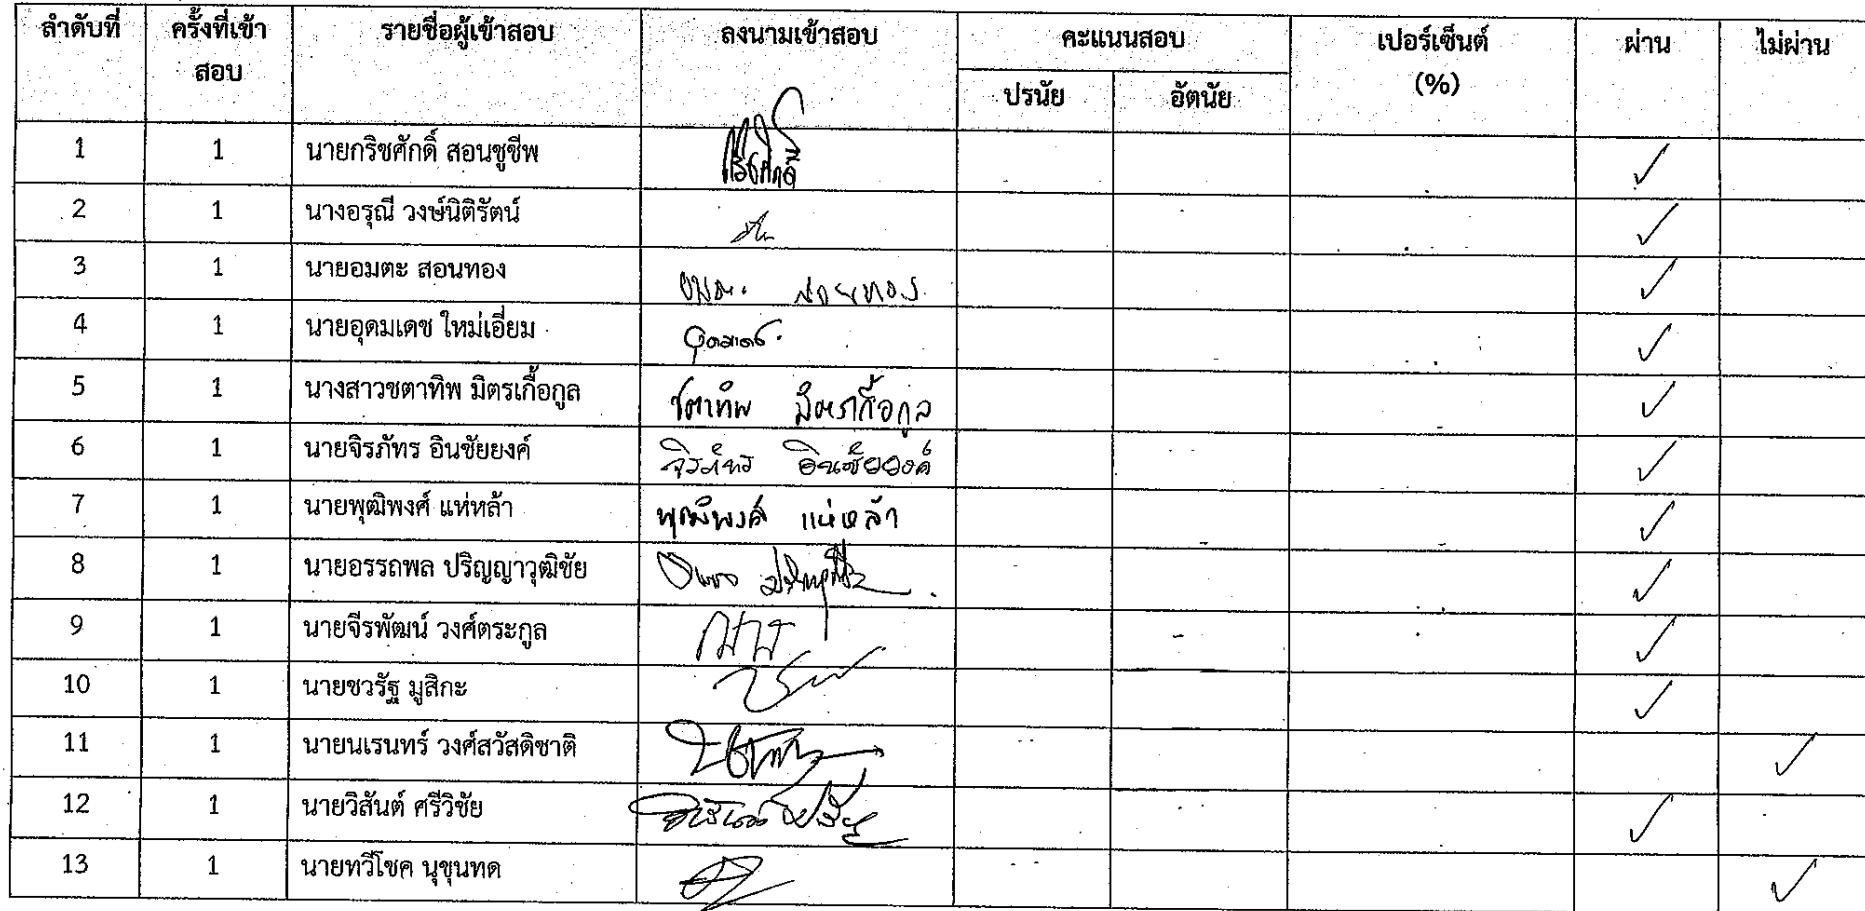 ลำดับที่ ครั้งที่เข้าสอบ รายชื่อผู้เข้าสอบ ลงนามเข้าสอบ คะแนนสอบ เปอร์เซ็นต์ (%) ผ่าน ไม่ผ่าน
ปรนัย อัตนัย
1 1 นายกริชศักดิ์ สอนชูชีพ กริชศักดิ์ ✓
2 1 นางอรุณี วงษ์นิติรัตน์ ✓
3 1 นายอมตะ สอนทอง อมตะ สอนทอง ✓
4 1 นายอุดมเดช ใหม่เอี่ยม อุดมเดช ✓
5 1 นางสาวชตาทิพ มิตรเกื้อกูล ชตาทิพ มิตรเกื้อกูล ✓
6 1 นายจิรภัทร อินชัยยงค์ จิรภัทร อินชัยยงค์ ✓
7 1 นายพุฒิพงศ์ แห่หล้า พุฒิพงศ์ แห่หล้า ✓
8 1 นายอรรถพล ปริญญาวุฒิชัย ✓
9 1 นายจีรพัฒน์ วงศ์ตระกูล ✓
10 1 นายชวรัฐ มูสิกะ ✓
11 1 นายนเรนทร์ วงศ์สวัสดิชาติ ✓
12 1 นายวิสันต์ ศรีวิชัย ✓
13 1 นายทวีโชค นุชุนทด ✓